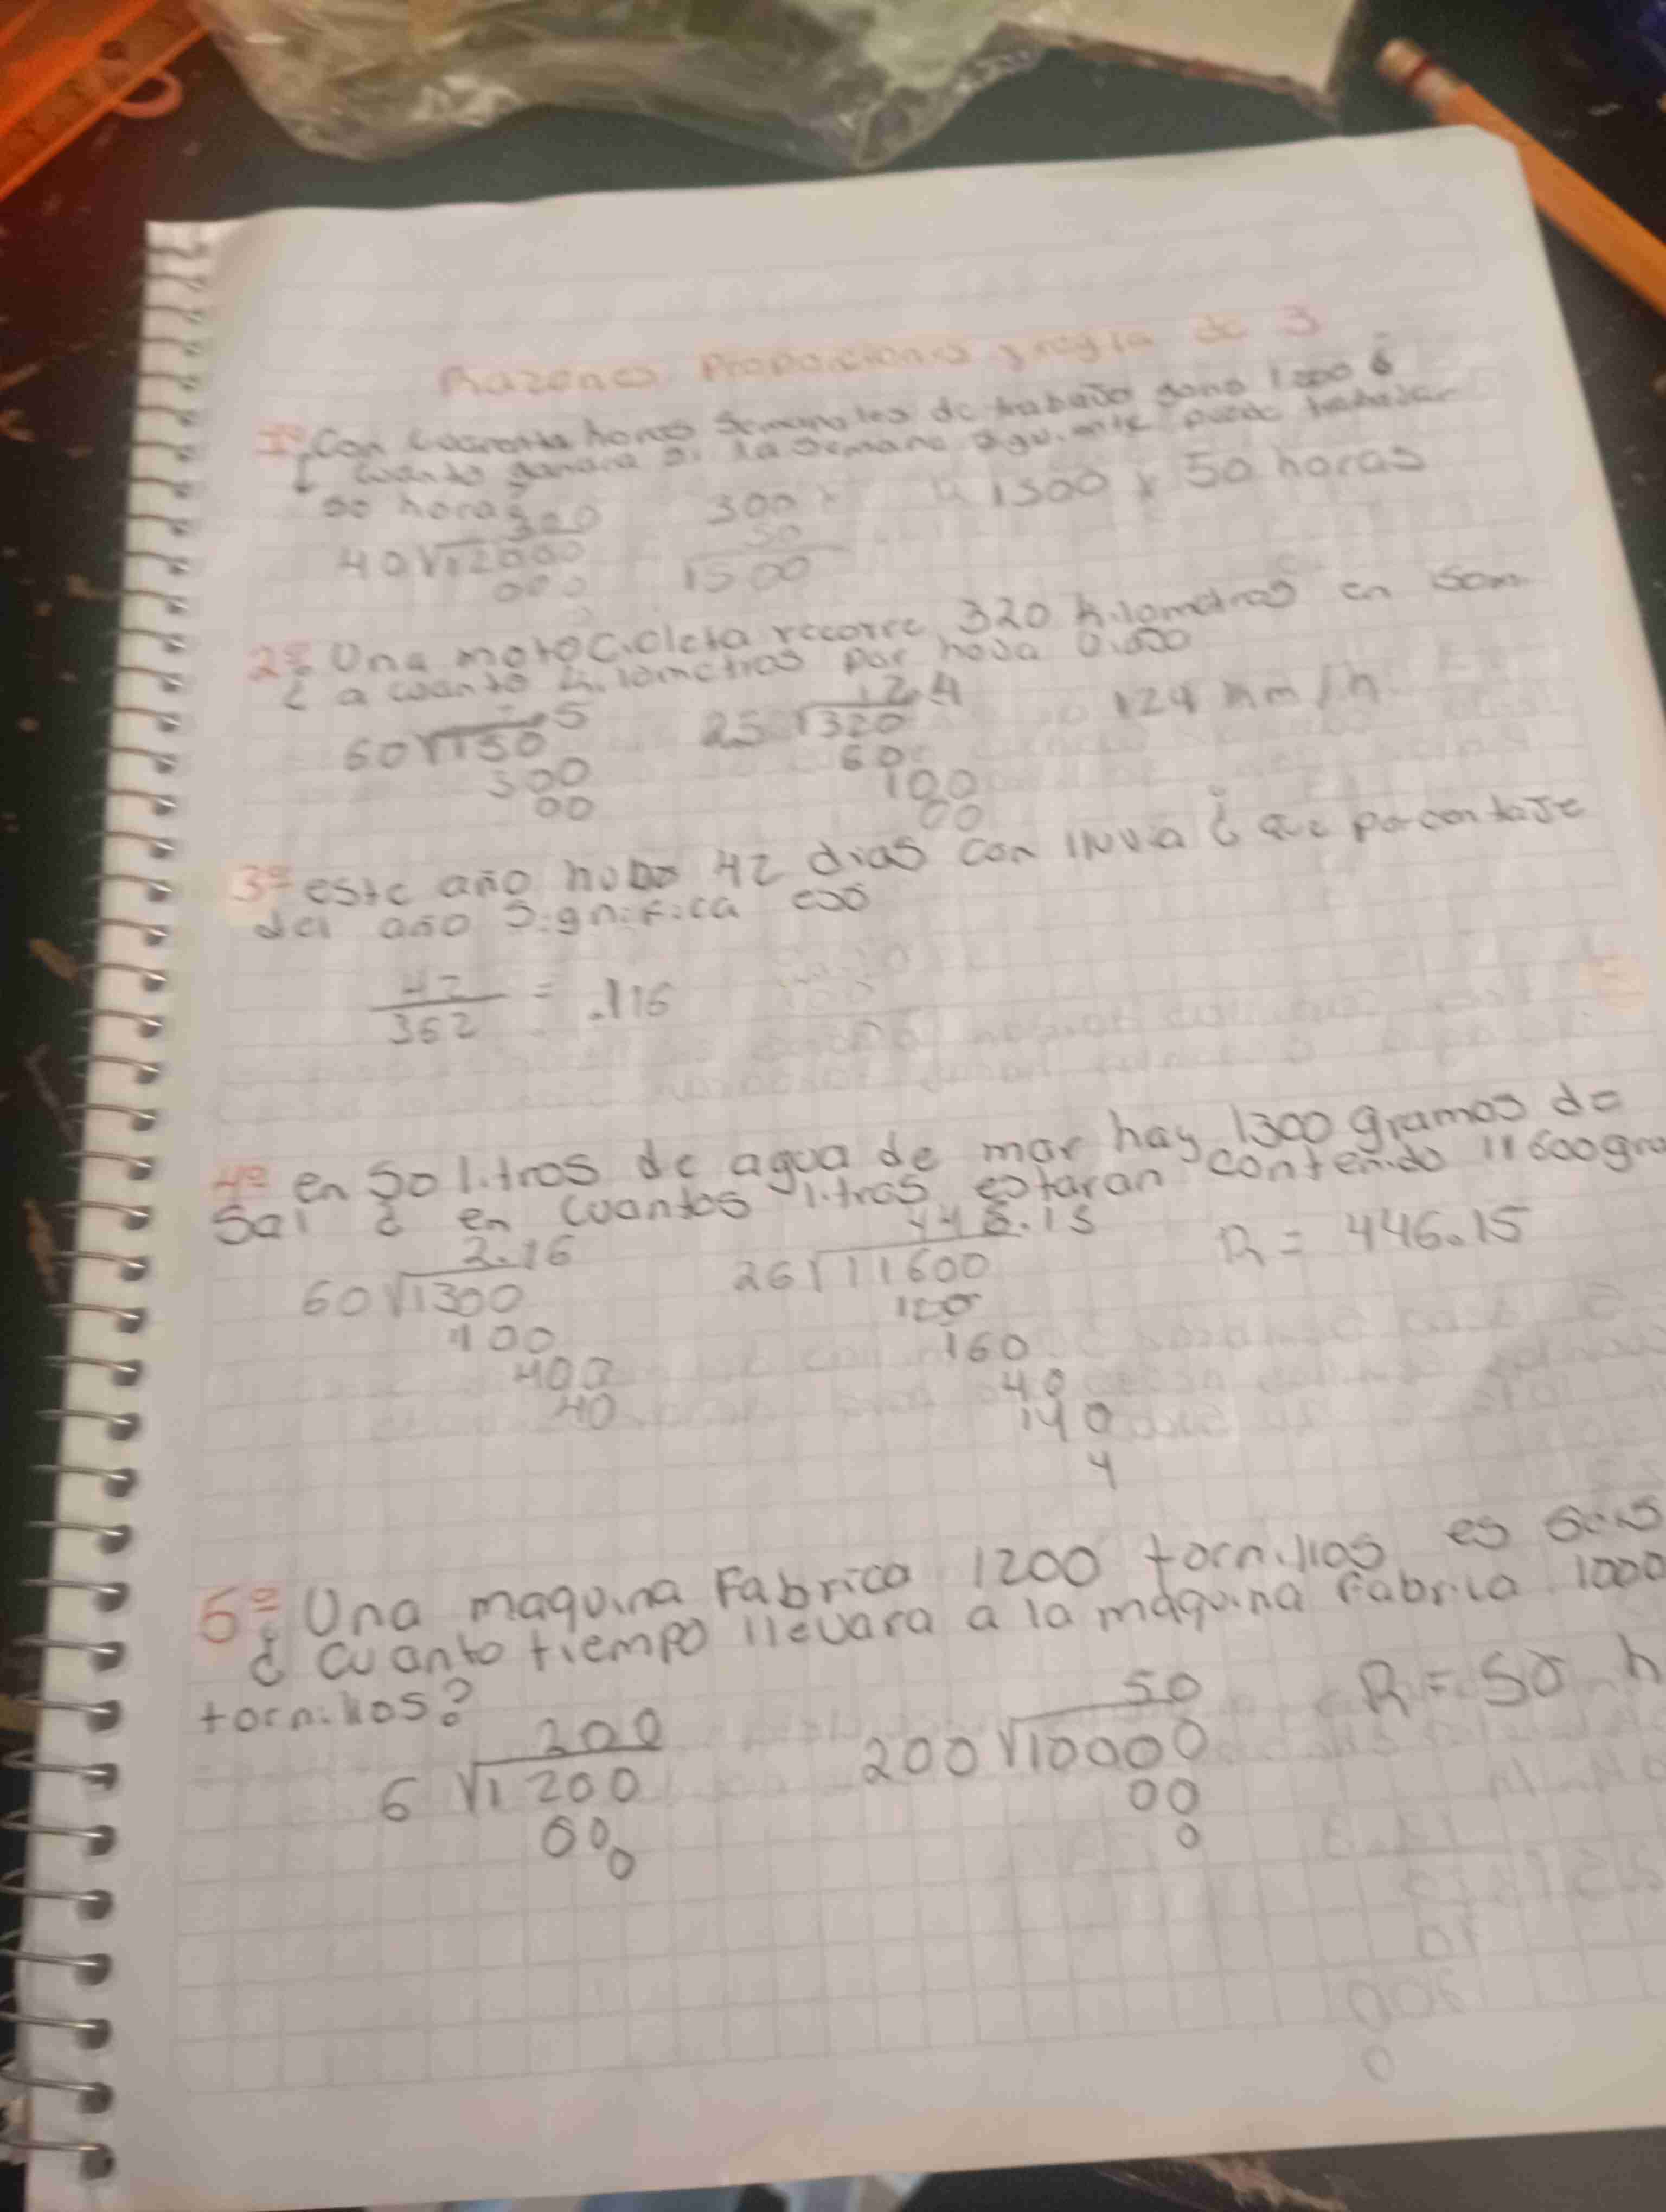 Razones Proporciones y regla de 3
1º Con cuarenta horas semanales de trabajo gano 12000 ¿
cuanto ganara si la semana siguiente puede trabajar
50 horas
300
40√12000
000
300 x
50
1500
1500 x 50 horas
2º Una motocicleta recorre 320 kilometros en 150m
¿ a cuanto kilometros por hora
.5
60√150
300
00
12.4
25√320
60
100
00
124 km/h
3º este año hubo 42 dias con lluvia ¿ que porcentaje
del año significa eso
42
362
= .116
4º en 50 litros de agua de mar hay 1300 gramos de
sal ¿ en cuantos litros estaran contenido 11600gra
2.16
60√1300
100
400
40
446.15
26√11600
120
160
40
140
4
R = 446.15
5º Una maquina Fabrica 1200 tornillos es seis
¿ cuanto tiempo llevara a la maquina Fabrica 1000
tornillos?
200
6√1200
000
50
200√10000
00
0
R = 50 h